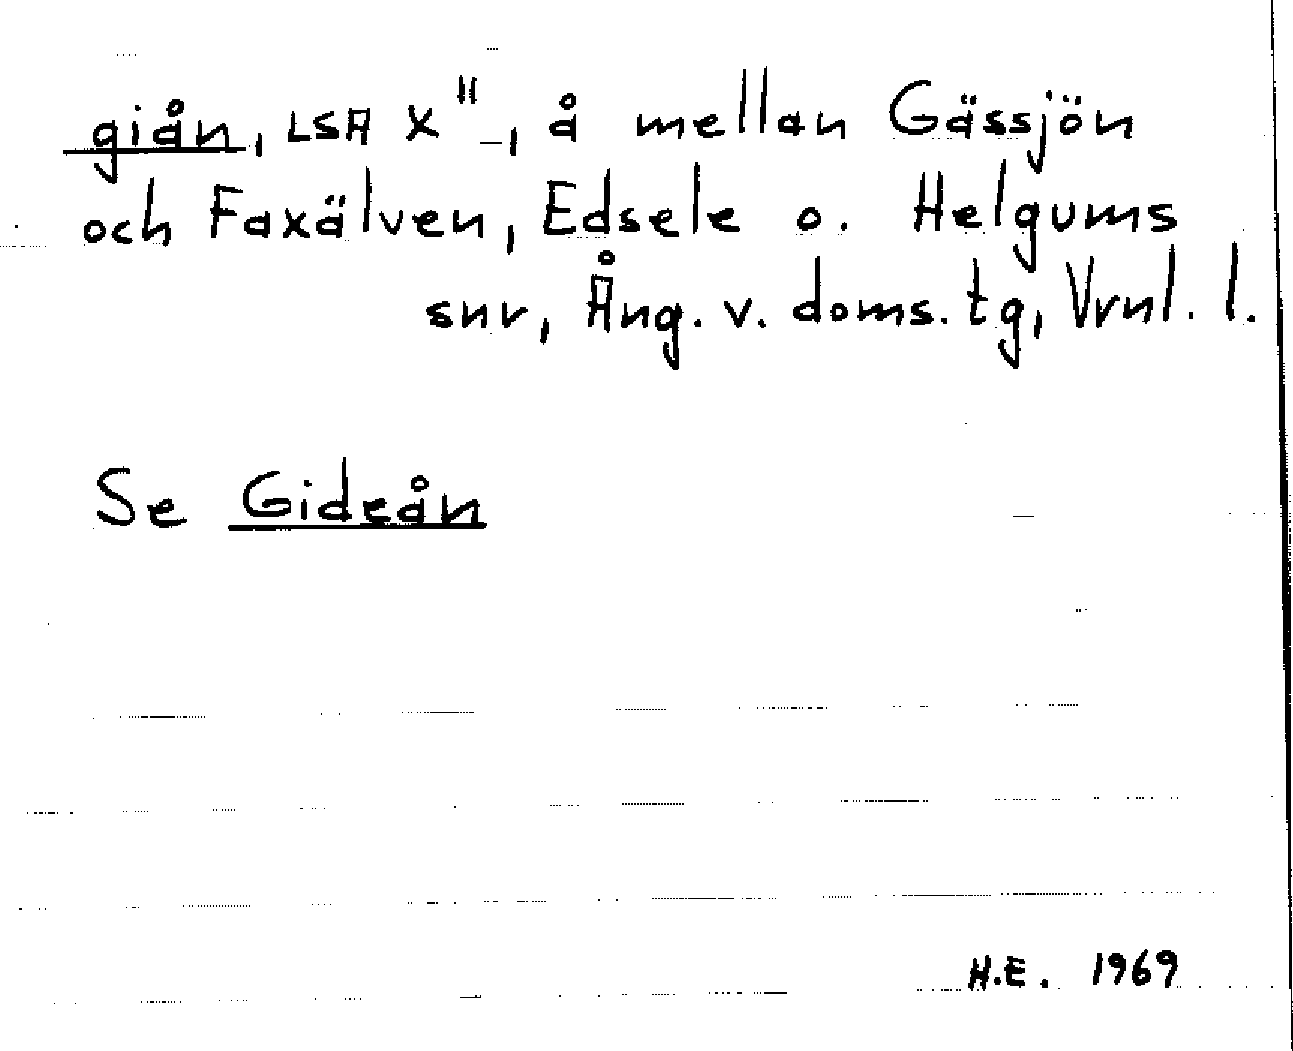 giån, LSA X"_, å mellan Gässjön
och Faxälven, Edsele o. Helgums
snr, Ång. v. doms. tg, Vrnl. l.
Se Gideån
H.E. 1969